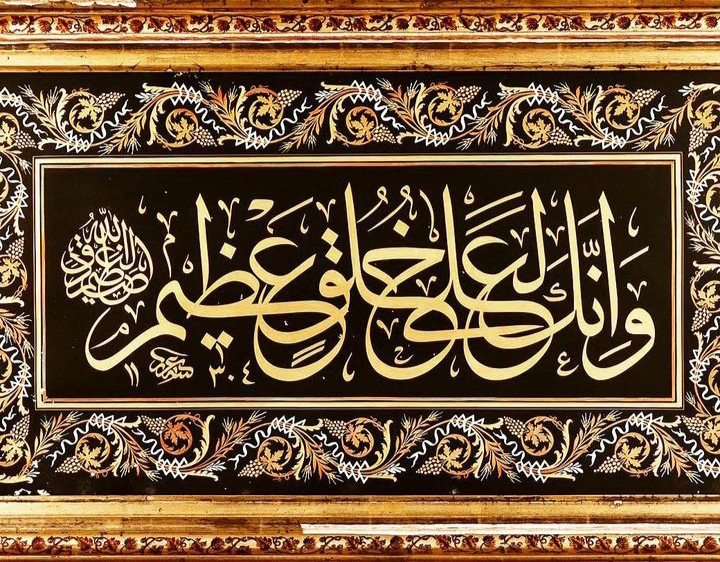 وَإِنَّكَ لَعَلَى خُلُقٍ عَظِيمٍ
صدق الله العظيم
٣٠٤